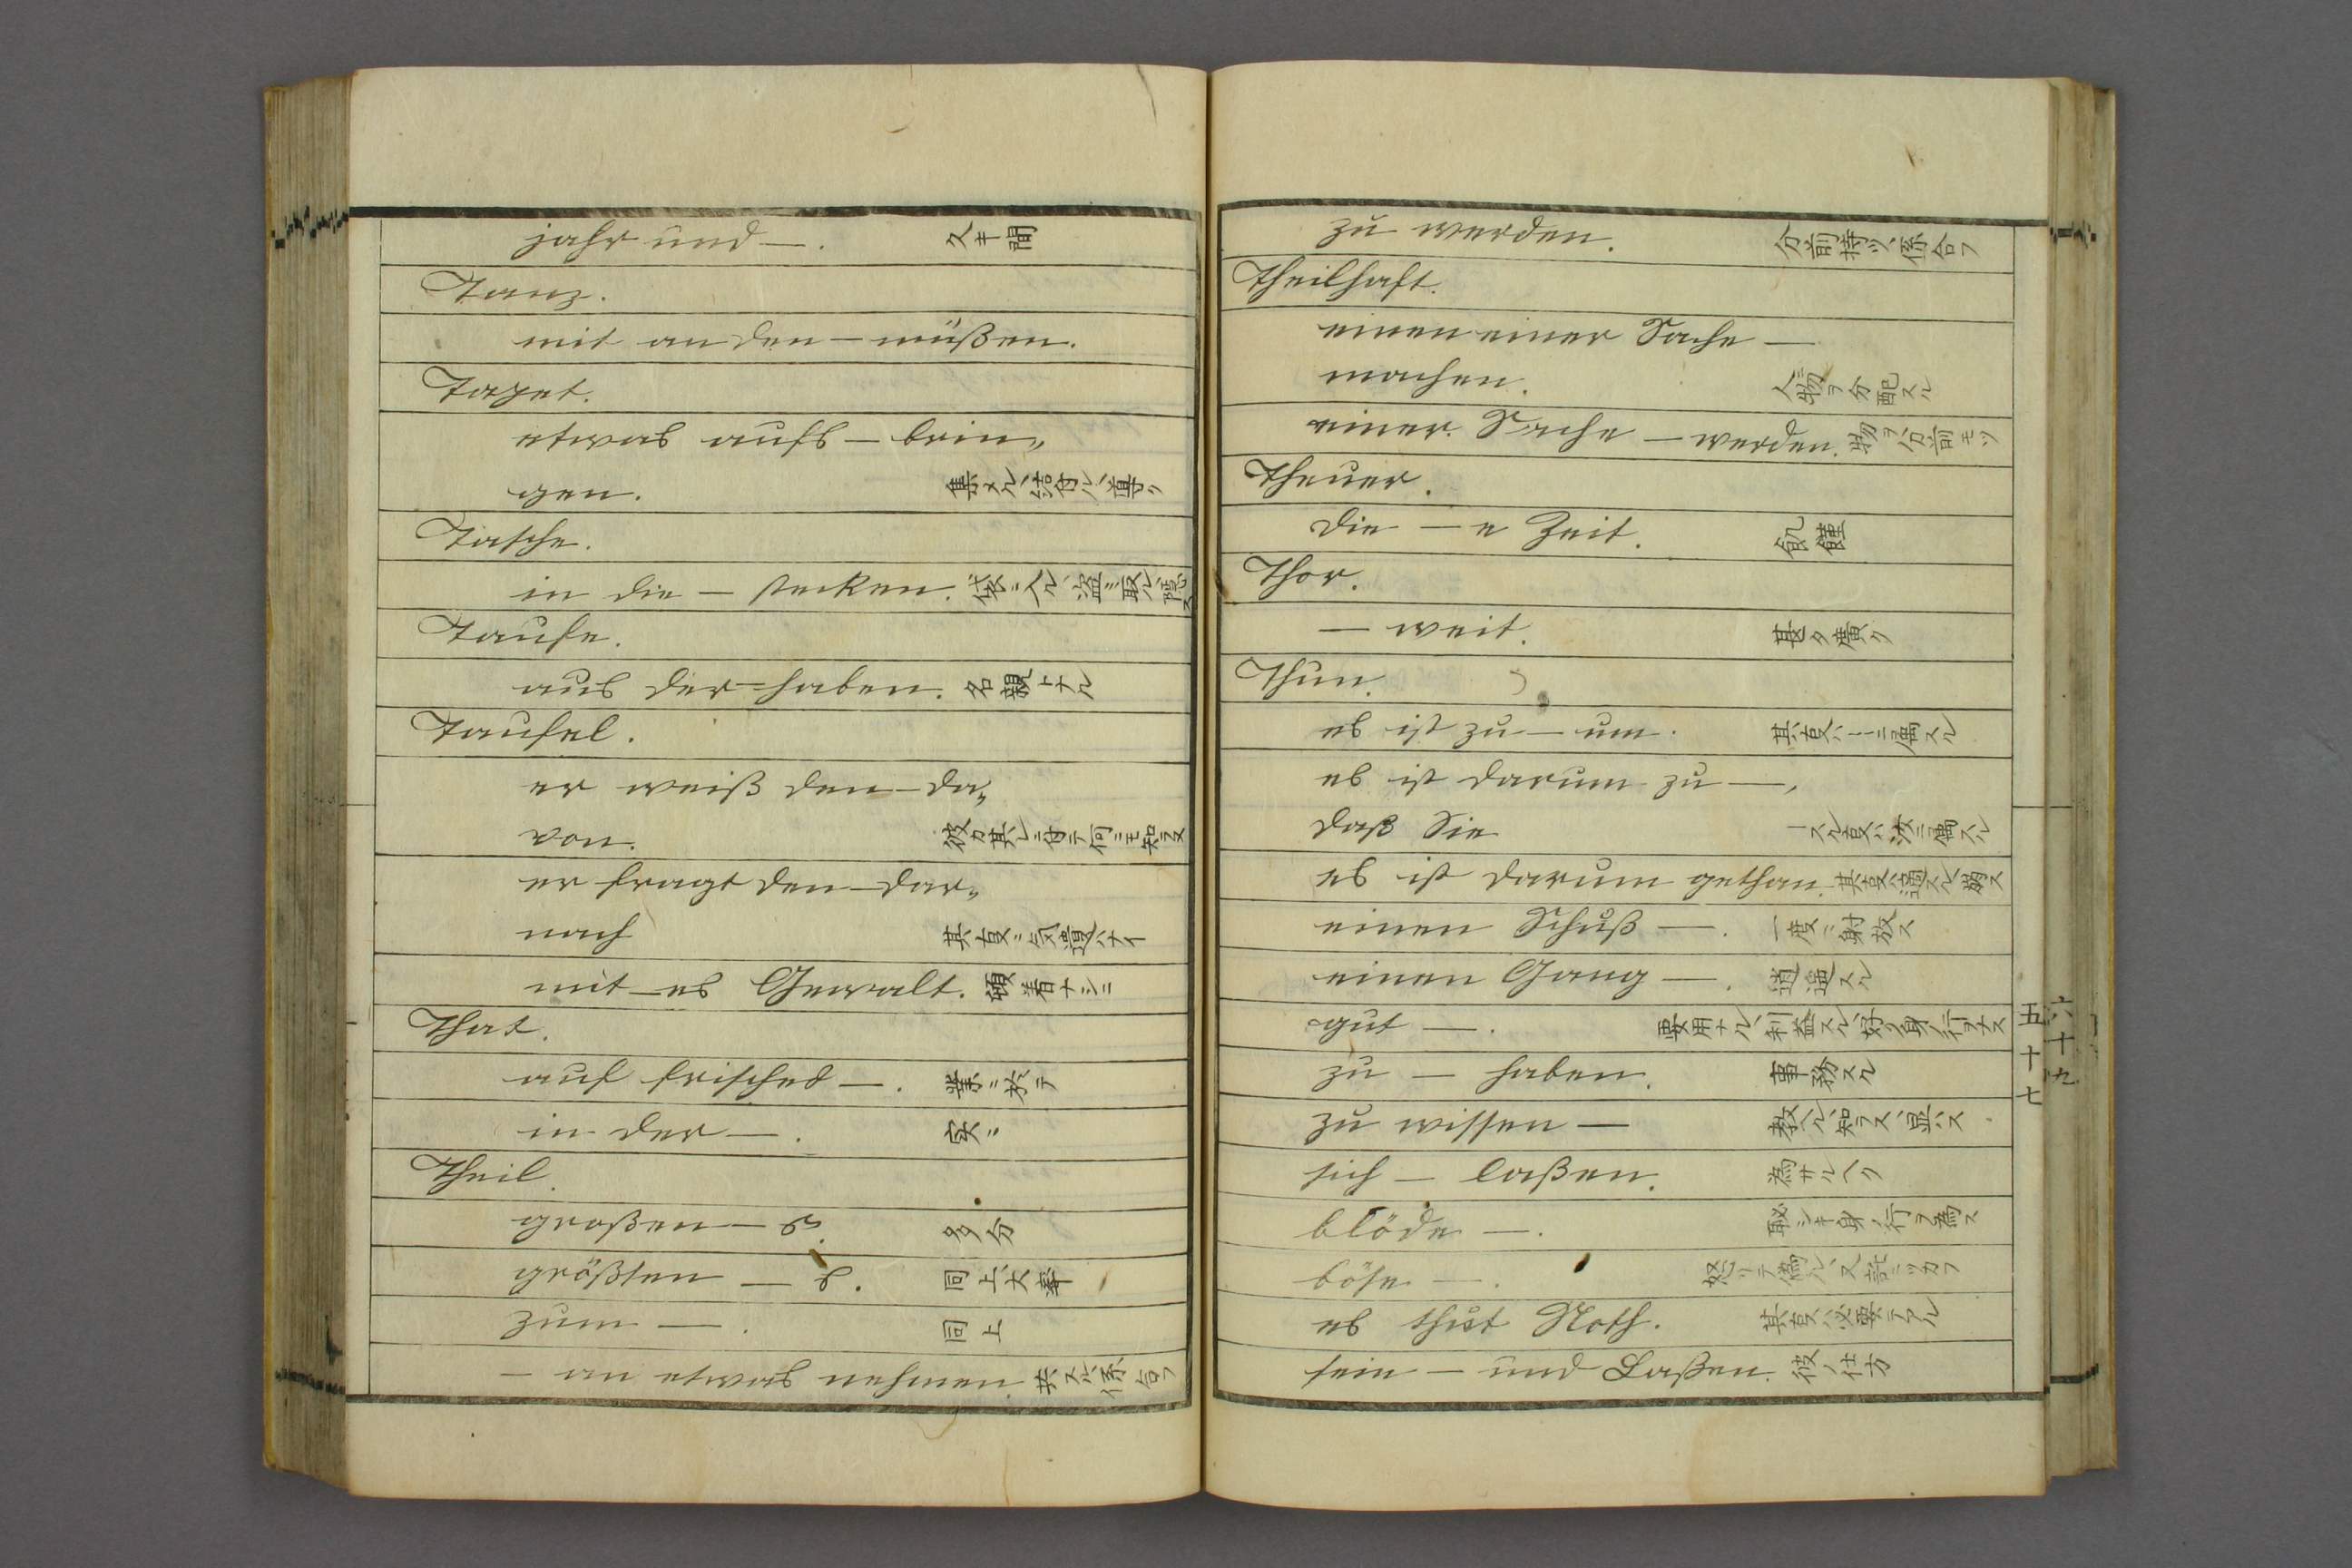 jahr und —. 久キ間
Tanz.
mit an den — müßen.
Tapet.
etwas aufs — brin,,
gen. 集メル、結付ル、導ク
Tasche.
in die — stecken. 袋ニ入ル、盗ミ取ル、隠ス
Taufe.
aus der — haben. 名親トナル
Taufel.
er weiß den — da,,
von. 彼カ其レニ付テ何ニモ知ラヌ
er fragt den — dar,,
nach 其亥ニ気遣ハナイ
mit — es Gewalt. 頓着ナシニ
That.
auf frisched —. 業ニ於テ
in der —. 実ニ
Theil.
großen — s. 多分
größten — s. 同上、大率
zum —. 同上
— an etwas nehmen. 共ス、係合フ
zu werden. 分前持ツ、係合フ
Theilhaft.
einen einer Sache —
machen. 人ニ物ヲ分配スル
einer Sache — werden. 物ヲ分前モツ
Theuer.
die — e Zeit. 飢饉
Thor.
— weit. 甚タ廣ク
Thun.
es ist zu — um. 其亥ハ — ニ係スル
es ist darum zu —,
daß Sie — スル亥ハ汝ニ係スル
es ist darum gethan. 其亥ハ
einen Schuß —. 一度ニ射放ス
einen Gang —. 逍遥スル
gut —. 要用ナル、利益スル、好身ノ行ヲナス
zu — haben. 事務スル
zu wissen — 教ヘル、知ラス、显ハス
sich — laßen. 為サルヘク
blöde —. 恥シキ身ノ行ヲ為ス
böse —. 怒リテ偽ル
es thut Noth. 其亥ハ必要テアル
sein — und Laßen. 彼ノ仕方
五十七
六十九